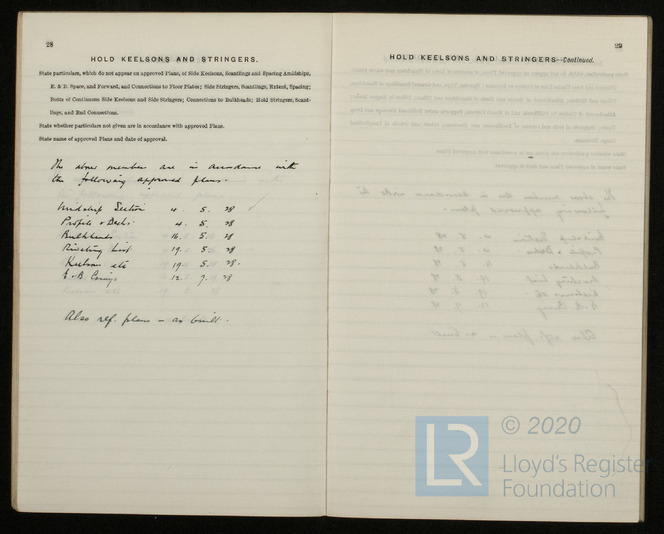 28
HOLD KEELSONS AND STRINGERS.
State particulars, which do not appear on approved Plans, of Side Keelsons, Scantlings and Spacing Amidships,
E. & B. Space, and Forward, and Connections to Floor Plates; Side Stringers, Scantlings, Extent, Spacing;
Butts of Continuous Side Keelsons and Side Stringers; Connections to Bulkheads; Hold Stringers, Scant-
lings, and End Connections.
State whether particulars not given are in accordance with approved Plans.
State name of approved Plans and date of approval.
The above members are in accordance with
the following approved plans.
Midship Section 4. 5. 28
Profile & Decks 4. 5. 28
Bulkheads 16. 5. 28
Riveting List 19. 5. 28
Keelson etc 19. 5. 28.
E & B Casings 12. 7. 28
Also ref. plans - as built.
29
HOLD KEELSONS AND STRINGERS—Continued.
LR
© 2020
Lloyd's Register
Foundation